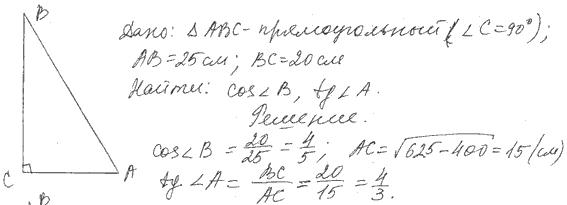 B
Дано: △ ABC - прямоугольный (∠C=90°);
AB=25см; BC=20см
Найти: cos∠B, tg∠A.
Решение.
cos∠B = 20/25 = 4/5; AC = √625-400 = 15 (см)
C A
tg ∠A = BC/AC = 20/15 = 4/3.
B